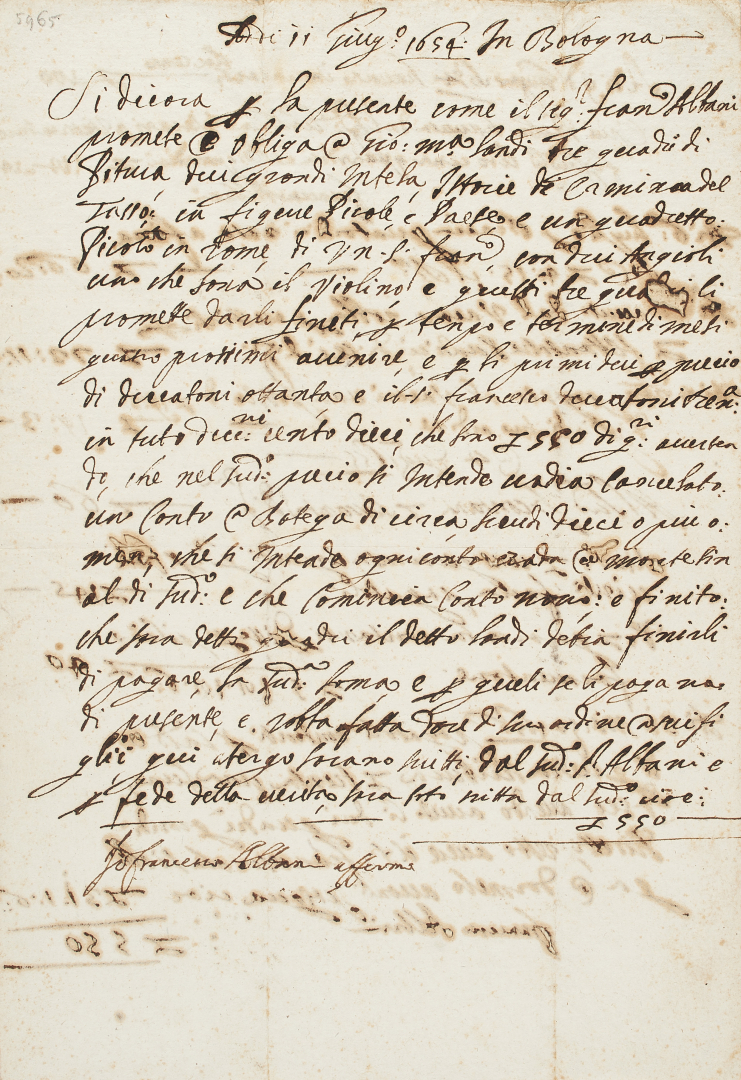 5965
Adi 11 Giug.o 1654 In Bologna
Si dicora p la presente come il sig.r fran.co Albani
promete e obliga @ Gio: m.a Sandi tre quadri di
Pitura dui grandi Intesa Istorie de Erminia del
Tasso: in figure Picole, e Paese e un quadretto
Picolo in Rame di Un S. fran.co con dui Angioli
uno che sona il violino e questi tre quadri li
promette darli finiti p tenpo e termine di mesi
quatro prossimi avenire, e p li primi dui p precio
di ducatoni ottanta e il S. francesco ducatoni tren.a
in tuto duc.ni cento dieci, che sono £ 550 di q.ni averten
do, che nel sud.o precio si Intende vadia Cancelato
un Conto @ Botega di circa scudi dieci o piu o
men, che si Intende ogni conto vada @ monte sin
al di sud.o e che Comincia Conto novo: e finito
che sara detti quadri il detto Sandi debia finirli
di pagare, la sud.a soma e p queli se li paga
di presente, e robba fatta dare di suo ordine @ suoi fi
glii qui atergo sarano scritti, dal sud.o S. Albani e
p fede della verita sara soto scritta dal sud.o
£ 550
Io francesco Albani affermo